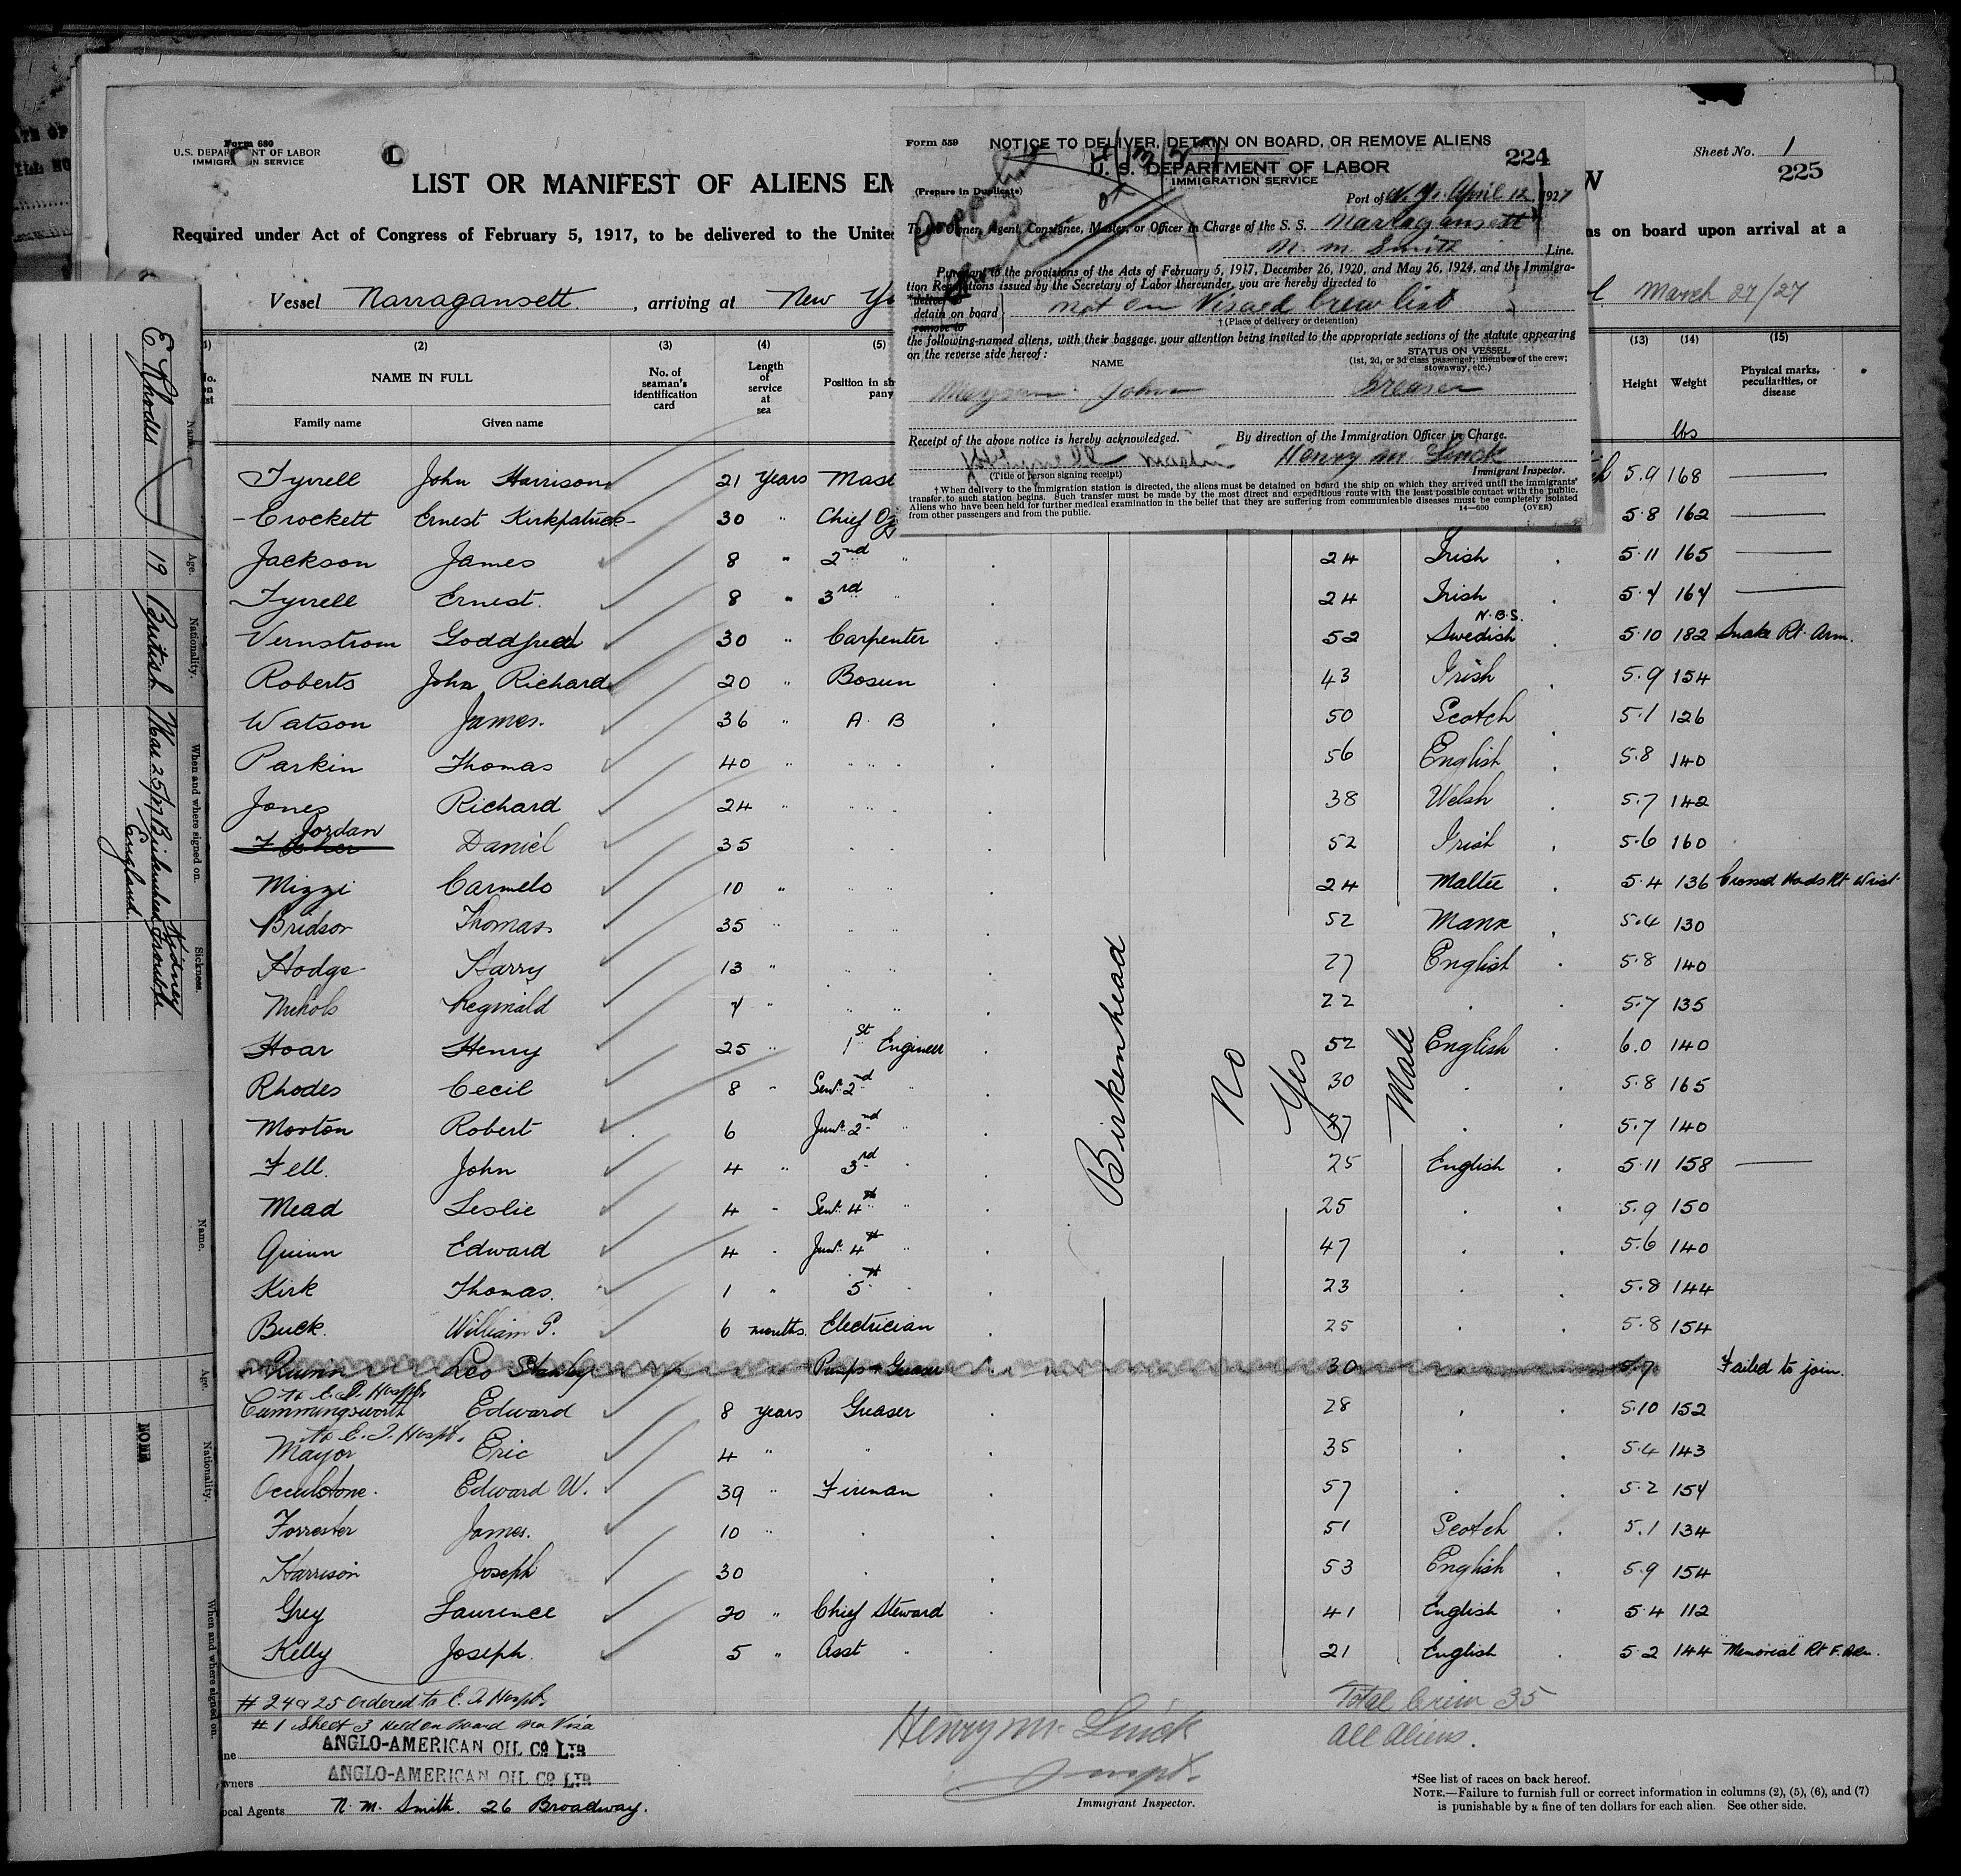 Form 680
U.S. DEPARTMENT OF LABOR
IMMIGRATION SERVICE
L
LIST OR MANIFEST OF ALIENS EM
Sheet No. 1
225
Required under Act of Congress of February 5, 1917, to be delivered to the Unite
ns on board upon arrival at a
Vessel Narragansett. , arriving at New Yo
March 27/27
Form 559
NOTICE TO DELIVER, DETAIN ON BOARD, OR REMOVE ALIENS
U. S. DEPARTMENT OF LABOR
224
IMMIGRATION SERVICE
(Prepare in Duplicate)
Port of N. Y. April 12, 1927
To the Owner, Agent, Consignee, Master, or Officer in Charge of the S. S. Narragansett
N. M. Smith Line.
Pursuant to the provisions of the Acts of February 5, 1917, December 26, 1920, and May 26, 1924, and the Immigra-
tion Regulations issued by the Secretary of Labor thereunder, you are hereby directed to
*deliver to
detain on board
remove to
not on Visaed Crew list
†(Place of delivery or detention)
the following-named aliens, with their baggage, your attention being invited to the appropriate sections of the statute appearing
on the reverse side hereof:
NAME
STATUS ON VESSEL
(1st, 2d, or 3d class passenger; member of the crew;
stowaway, etc.)
John Greaser
Receipt of the above notice is hereby acknowledged. By direction of the Immigration Officer in Charge.
Henry M Linick
(Title of person signing receipt)
Immigrant Inspector.
†When delivery to the immigration station is directed, the aliens must be detained on board the ship on which they arrived until the immigrants'
transfer to such station begins. Such transfer must be made by the most direct and expeditious route with the least possible contact with the public.
Aliens who have been held for further medical examination in the belief that they are suffering from communicable diseases must be completely isolated
from other passengers and from the public.
14—600 (OVER)
(2) (3) (4) (5) (13) (14) (15)
NAME IN FULL
Family name
Given name
No. of seaman's identification card
Length of service at sea
Position in sh
pany
Height
Weight
lbs
Physical marks, peculiarities, or disease
Tyrrell John Harrison 21 Years Mast 5.9 168
Crockett Ernest Kirkpatrick 30 " Chief Of 5.8 162
Jackson James 8 " 2nd " 24 Irish 5.11 165
Tyrrell Ernest. 8 " 3rd " 24 Irish 5.4 164
N.B.S.
Vernstrom Goddfred 30 " Carpenter 52 Swedish 5.10 182 Snake Rt. Arm.
Roberts John Richard 20 " Bosun 43 Irish 5.9 154
Watson James. 36 " A. B 50 Scotch 5.1 126
Parkin Thomas 40 " " " 56 English 5.8 140
Jones Richard 24 " " " 38 Welsh 5.7 142
Jordan
Fisher Daniel 35 52 Irish 5.6 160
Mizzi Carmelo 10 " " " 24 Maltee 5.4 136 Crossed Hands Rt Wrist
Bridson Thomas 35 " " " 52 Manx 5.4 130
Hodge Harry 13 " " " 27 English 5.8 140
Nichols Reginald 4 " " " 22 5.7 135
Hoar Henry 25 " 1st Engineer 52 English 6.0 140
Rhodes Cecil 8 " Senr. 2nd " 30 5.8 165
Morton Robert 6 Junr. 2nd " 37 5.7 140
Fell. John 4 " 3rd " 25 English 5.11 158
Mead Leslie 4 " Senr. 4th " 25 5.9 150
Quinn Edward 4 " Junr. 4th " 47 5.6 140
Kirk Thomas. 1 " 5th 23 5.8 144
Buck. William P. 6 months. Electrician 25 5.8 154
Quinn Leo Stanley Pumps + Greaser 30 5.7 Failed to join.
to E. I. Hosptl.
Cummingsworth Edward 8 years Greaser 28 5.10 152
to E. I. Hosptl.
Mayor Eric 4 " " 35 5.4 143
Occulstone. Edward W. 39 " Fireman 57 5.2 154
Forrester James. 10 " 51 Scotch 5.1 134
Harrison Joseph 30 53 English 5.9 154
Grey Laurence 20 " Chief Steward 41 English 5.4 112
Kelly Joseph. 5 " Asst " 21 English 5.2 144 "Memorial" Rt F. Arm.
Birkenhead
No
Yes
Male
# 24 & 25 ordered to E. I. Hosptl.
# 1 Sheet 3 held on board no Visa
ANGLO-AMERICAN OIL CO LTD
wners ANGLO-AMERICAN OIL CO LTD
ocal Agents N. M. Smith. 26 Broadway.
Henry M. Linick
Inspt.
Immigrant Inspector.
Total Crew 35
All Aliens.
*See list of races on back hereof.
NOTE.—Failure to furnish full or correct information in columns (2), (5), (6), and (7)
is punishable by a fine of ten dollars for each alien. See other side.
Name. Age. Nationality. When and where signed on. Sickness.
E Rhodes 19 British Mar 25/27 Birkenhead England Kidney Trouble
Name. Age. Nationality When and where signed on.
NONE